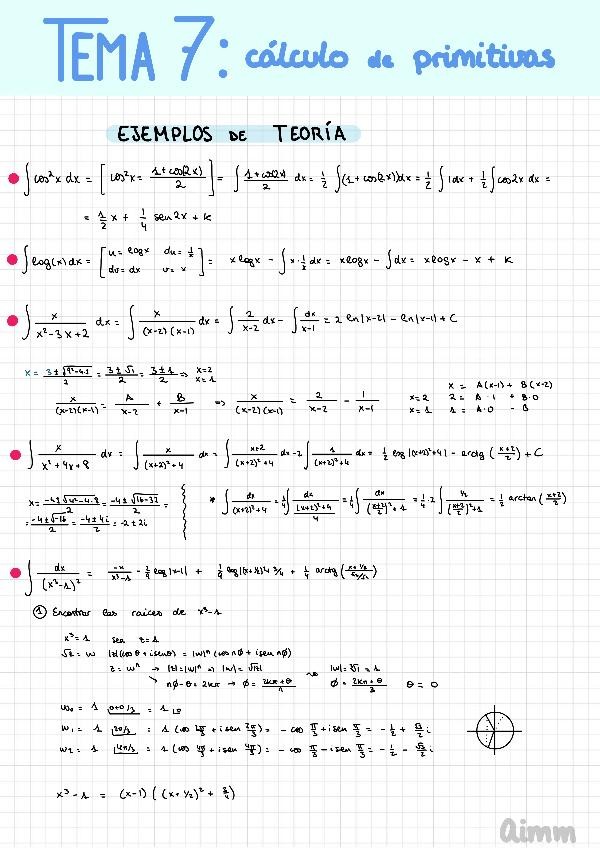 TEMA 7: cálculo de primitivas
EJEMPLOS DE TEORÍA
∫cos²x dx = [cos²x = (1+cos(2x))/2] = ∫(1+cos(2x))/2 dx = 1/2 ∫(1+cos(2x))dx = 1/2 ∫1dx + 1/2 ∫cos2x dx =
= 1/2 x + 1/4 sen2x + K
∫log(x)dx = [u = logx du = 1/x dv = dx v = x] = xlogx - ∫x·1/x dx = xlogx - ∫dx = xlogx - x + K
∫ x/(x²-3x+2) dx = ∫ x/((x-2)(x-1)) dx = ∫ 2/(x-2) dx - ∫ dx/(x-1) = 2 ln|x-2| - ln|x-1| + C
x = 3±1/2 ⇒ x=2 x=1
x = A(x-1) + B(x-2)
x/((x-2)(x-1)) = A/(x-2) + B/(x-1) ⇒ x/((x-2)(x-1)) = 2/(x-2) - 1/(x-1) x=2 2 = A·1 + B·0
x=1 1 = A·0 - B
∫ x/(x²+4x+8) dx = ∫ x/((x+2)²+4) dx = ∫ (x+2)/((x+2)²+4) dx - 2∫ 1/((x+2)²+4) dx = 1/2 log|(x+2)²+4| - arctg((x+2)/2) + C
x = (-4±√(4²-4·8))/2 = (-4±√(16-32))/2 = * ∫ dx/((x+2)²+4) = 1/4 ∫ dx/(((x+2)²+4)/4) = 1/4 ∫ dx/(((x+2)/2)²+1) = 1/4·2 ∫ 1/2/(((x+2)/2)²+1) = 1/2 arctan((x+2)/2)
= (-4±√-16)/2 = (-4±4i)/2 = -2±2i
∫ dx/(x³-1)² = -x/(x³-1) - 2/9 log|x-1| + 1/9 log|(x+1/2)²+3/4| +
① Encontrar las raíces de x³-1
x³=1 sea z=1
√z = w |z|(cosθ + isenθ) = |w|ⁿ (cos nØ + isen nØ)
z = wⁿ → |z|=|w|ⁿ ⇒ |w| = ⁿ√|z| ⇝ |w| = ³√1 = 1
nØ-θ = 2kπ → Ø = (2kπ+θ)/n Ø = (2kπ+θ)/3 θ = 0
w₀ = 1 0+0/3 = 1 0
w₁ = 1 2π/3 = 1 (cos 2π/3 + isen 2π/3) = -cos π/3 + isen π/3 = -1/2 + √3/2 i
w₂ = 1 4π/3 = 1 (cos 4π/3 + isen 4π/3) = -cos π/3 - isen π/3 = -1/2 - √3/2 i
x³-1 = (x-1) ((x+1/2)² + 3/4)
aimm